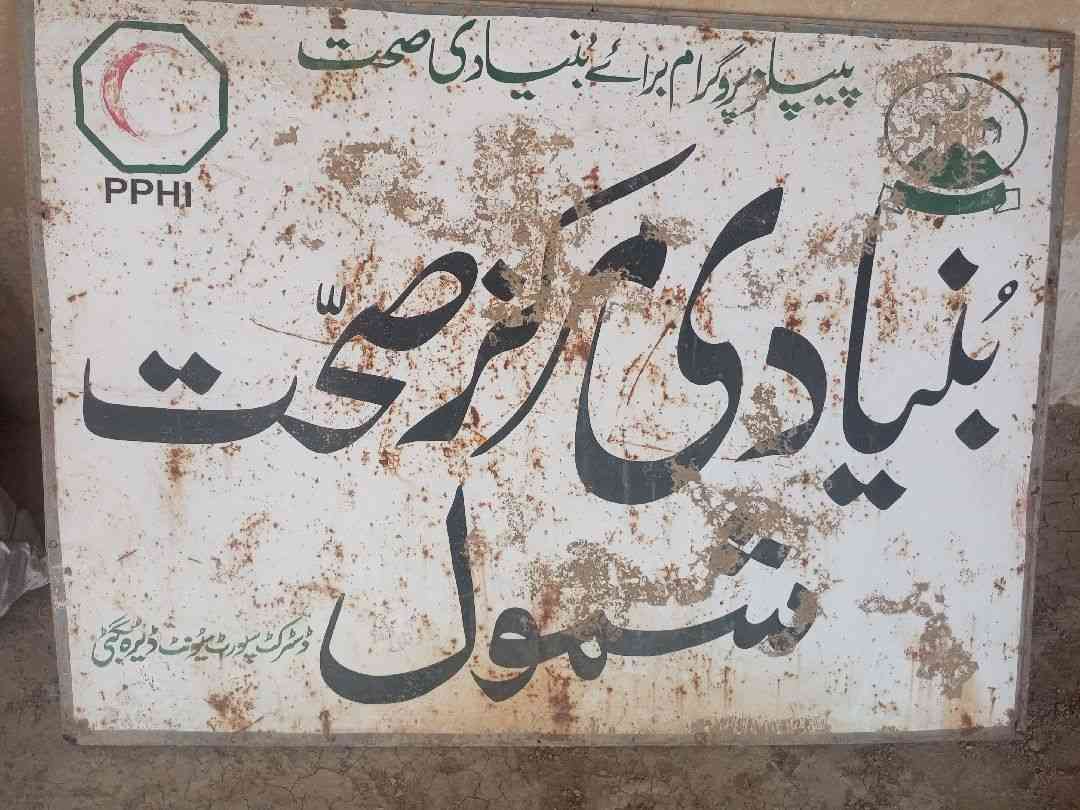 پیپلز پروگرام برائے بُنیادی صحت
PPHI
بُنیادی مرکز صحّت
شمول
ڈسٹرکٹ سپورٹ یُونٹ ڈیرہ بگٹی